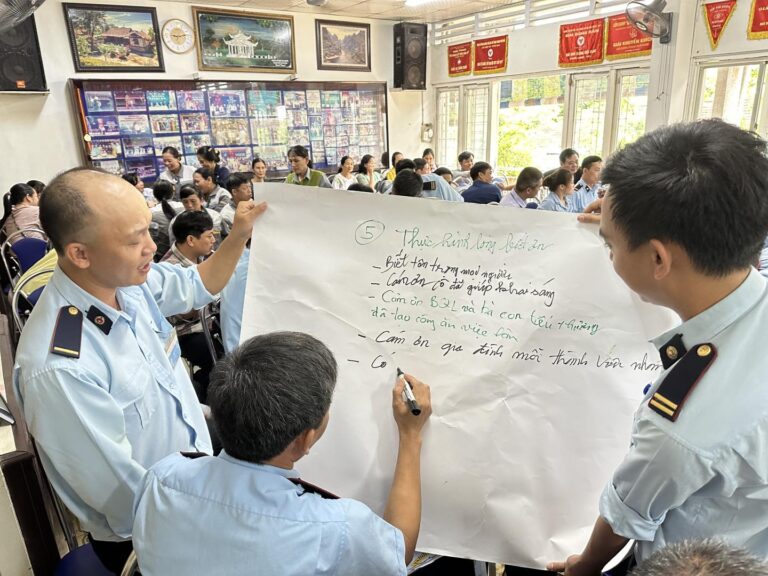 ⑤ Thực hành lòng biết ơn
- Biết tôn trọng mọi người
- Cám ơn cô đã giúp khai sáng
- Cám ơn BQL và bà con tiểu thương
đã tạo công ăn việc làm
- Cám ơn gia đình mỗi thành viên nhóm
- Cố